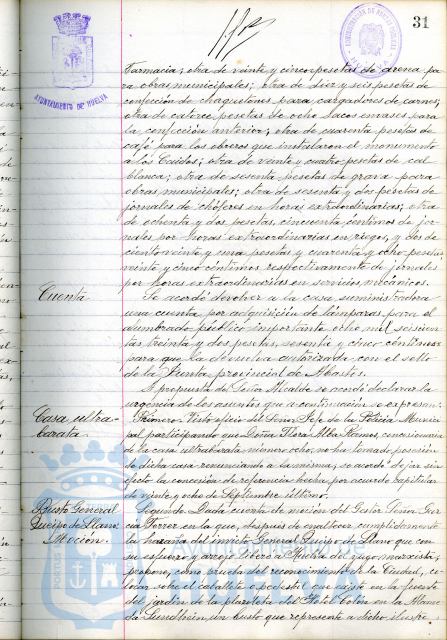 31
AYUNTAMIENTO DE HUELVA
Farmacia; otra de veinte y cinco pesetas de arena pa-
ra obras municipales; otra de diez y seis pesetas de
confección de chaquetones para cargadores de carnes,
otra de catorce pesetas de ocho sacos envases para
la confección anterior; otra de cuarenta pesetas de
café para los obreros que instalaron el monumento
a los Caídos; otra de veinte y cuatro pesetas de cal
blanca; otra de sesenta pesetas de grava para
obras municipales; otra de sesenta y dos pesetas de
jornales de chóferes en horas extraordinarias; otra
de ochenta y dos pesetas, cincuenta céntimos de jor-
nales por horas extraordinarias en riegos, y dos de
ciento veinte y una pesetas y cuarenta y ocho pesetas
veinte y cinco céntimos respectivamente de jornales
por horas extraordinarias en servicios mecánicos.
Cuenta
Se acordó devolver a la casa suministradora
una cuenta por adquisición de lámparas para el
alumbrado público importante ocho mil seiscien-
tas treinta y dos pesetas, sesenta y cinco céntimos
para que la devuelva autorizada con el sello
de la Junta provincial de Abastos.
A propuesta del Señor Alcalde se acordó declarar la
urgencia de los asuntos que a continuación se expresan:
Casa ultra-
barata
Primero: Visto oficio del Señor Jefe de la Policía Munici-
pal participando que Doña Flora Alba Ramos, concesionaria
de la casa ultrabarata número ocho, no ha tomado posesión
de dicha casa renunciando a la misma, se acordó dejar sin
efecto la concesión de referencia hecha por acuerdo capitular
de veinte y ocho de Septiembre último.
Busto General
Queipo de Llano
Moción.
Segundo: Dada cuenta de moción del Gestor Señor Gar-
cía Ferrer en la que, después de enaltecer cumplidamente
la hazaña del invicto General Queipo de Llano que con
su esfuerzo y arrojo liberó a Huelva del yugo marxista,
propone, como prueba del reconocimiento de la Ciudad, co-
locar sobre el caballete o pedestal que existe en la fuente
del jardín de la plazoleta del Hotel Colón en la Alame-
da Sundheim, un busto que represente a dicho ilustre